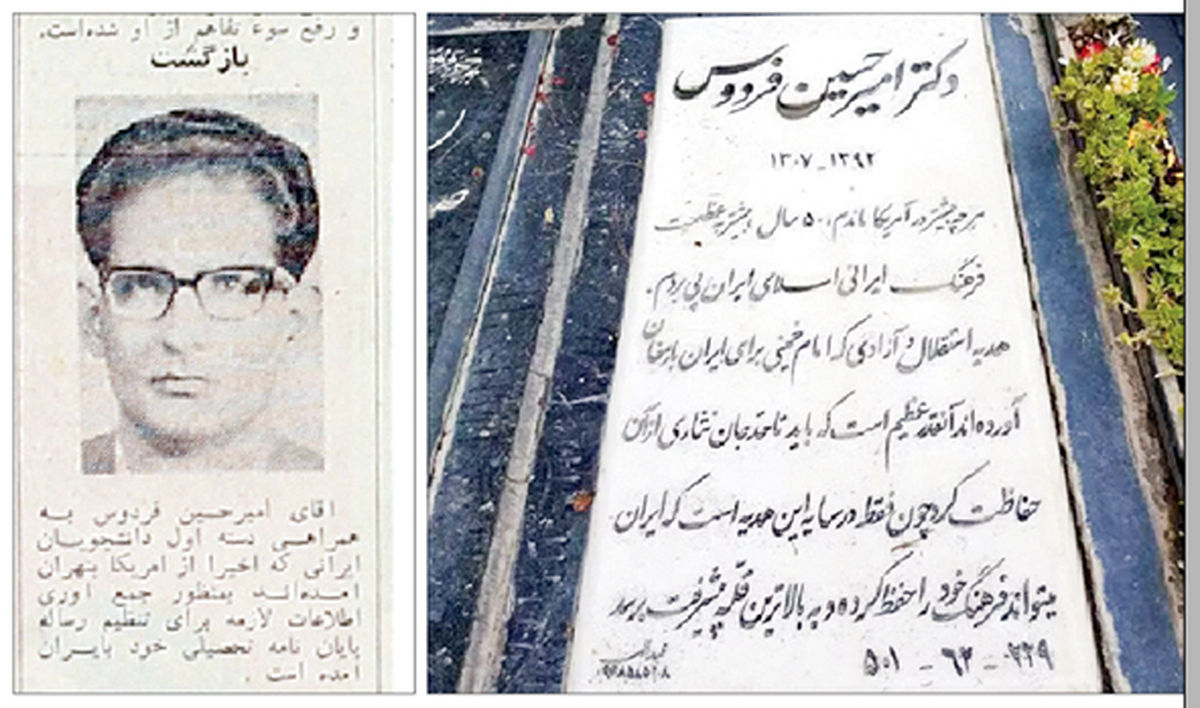 و رفع سوء تفاهم از او شده‌است.
بازگشت
اقای امیرحسین فردوس به
همراهی دسته اول دانشجویان
ایرانی که اخیرا از امریکا بتهران
امده‌اند بمنظور جمع آوری
اطلاعات لازمه برای تنظیم رساله
پایان نامه تحصیلی خود بایران
امده است .
دکتر امیرحسین فردوس
۱۳۰۷-۱۳۹۲
هر چه بیشتر در آمریکا ماندم، ۵۰ سال، بیشتر به عظمت
فرهنگ ایرانی اسلامی ایران پی بردم.
هدیه استقلال و آزادی که امام خمینی برای ایران بارمغان
آورده‌اند آنقدر عظیم است که باید تا حد جان نثاری از آن
حفاظت کرد چون فقط در سایه این هدیه است که ایران
میتواند فرهنگ خود را حفظ کرده و به بالاترین قله پیشرفت برسد
۵۰۱ - ۶۲ - ۲۲۹